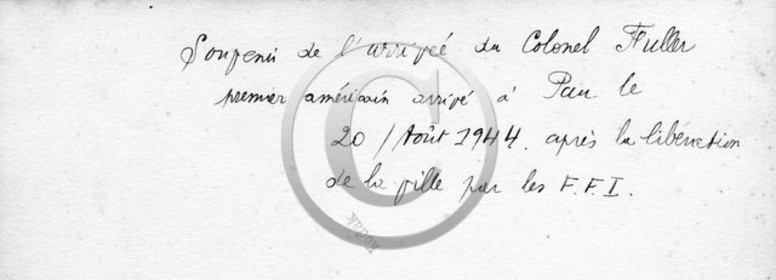 Souvenir de l'arrivée du Colonel Fuller
premier américain arrivé à Pau le
20 / Août 1944. après la libération
de la ville par les F.F.I.
©
kodak